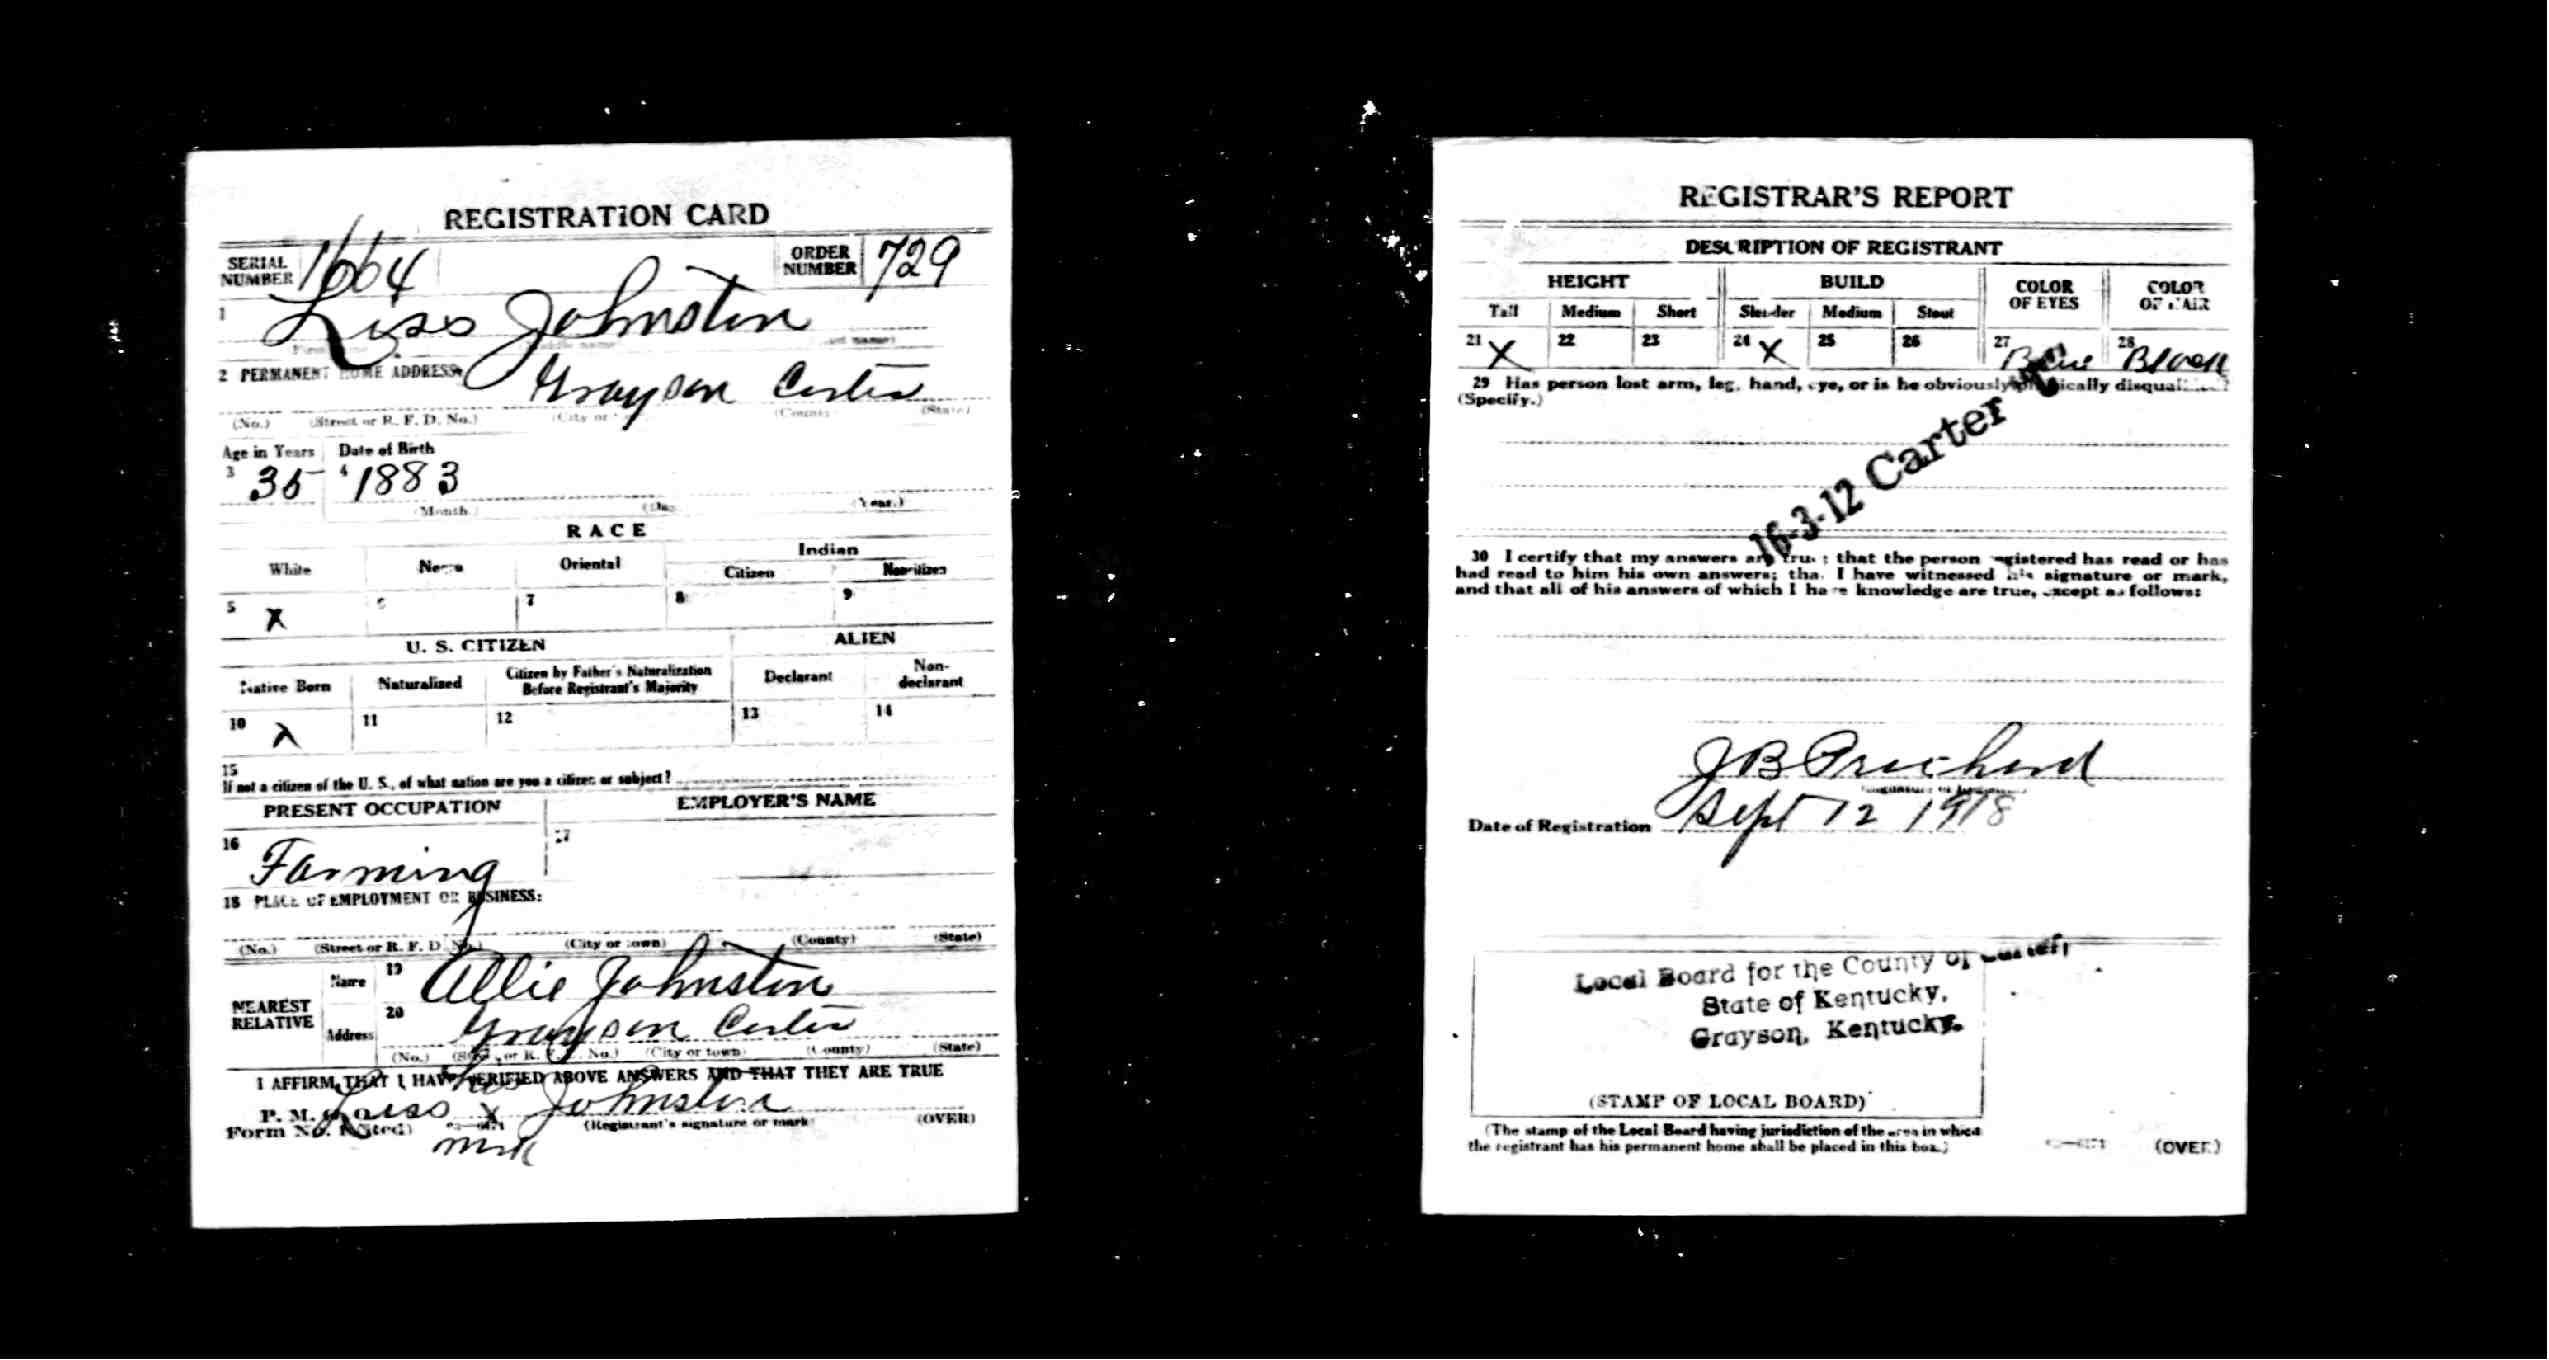 REGISTRATION CARD
SERIAL NUMBER 1664 ORDER NUMBER 729
1 Liss Johnston
2 PERMANENT HOME ADDRESS:
Grayson Carter
(No.) (Street or R. F. D. No.) (City or (County) (State)
Age in Years Date of Birth
3 35 4 1883
(Month.) (Day (Year.)
RACE
White Negro Oriental Indian
Citizen Noncitizen
5 X 6 7 8 9
U. S. CITIZEN ALIEN
Native Born Naturalized Citizen by Father's Naturalization Before Registrant's Majority Declarant Non-declarant
10 X 11 12 13 14
15
If not a citizen of the U. S., of what nation are you a citizen or subject?
PRESENT OCCUPATION EMPLOYER'S NAME
16 Farming 17
18 PLACE OF EMPLOYMENT OR BUSINESS:
(No.) (Street or R. F. D. No.) (City or town) (County) (State)
NEAREST RELATIVE
Name 19 Allie Johnston
Address 20 Grayson Carter
(No.) (Street or R. F. D. No.) (City or town) (County) (State)
I AFFIRM THAT I HAVE VERIFIED ABOVE ANSWERS AND THAT THEY ARE TRUE
his
P. M. G. O. Liss X Johnston
Form No. 1 (Red) (Registrant's signature or mark) (OVER)
mrk
REGISTRAR'S REPORT
DESCRIPTION OF REGISTRANT
HEIGHT BUILD COLOR OF EYES COLOR OF HAIR
Tall Medium Short Slender Medium Stout
21 X 22 23 24 X 25 26 27 Blue 28 Black
29 Has person lost arm, leg, hand, eye, or is he obviously physically disqualified?
(Specify.)
16-3-12 Carter
30 I certify that my answers are true; that the person registered has read or has
had read to him his own answers; that I have witnessed his signature or mark,
and that all of his answers of which I have knowledge are true, except as follows:
J B Prichard
Date of Registration Sept 12 1918
Local Board for the County of Carter,
State of Kentucky,
Grayson, Kentucky.
(STAMP OF LOCAL BOARD)
(The stamp of the Local Board having jurisdiction of the area in which
the registrant has his permanent home shall be placed in this box.)
(OVER)